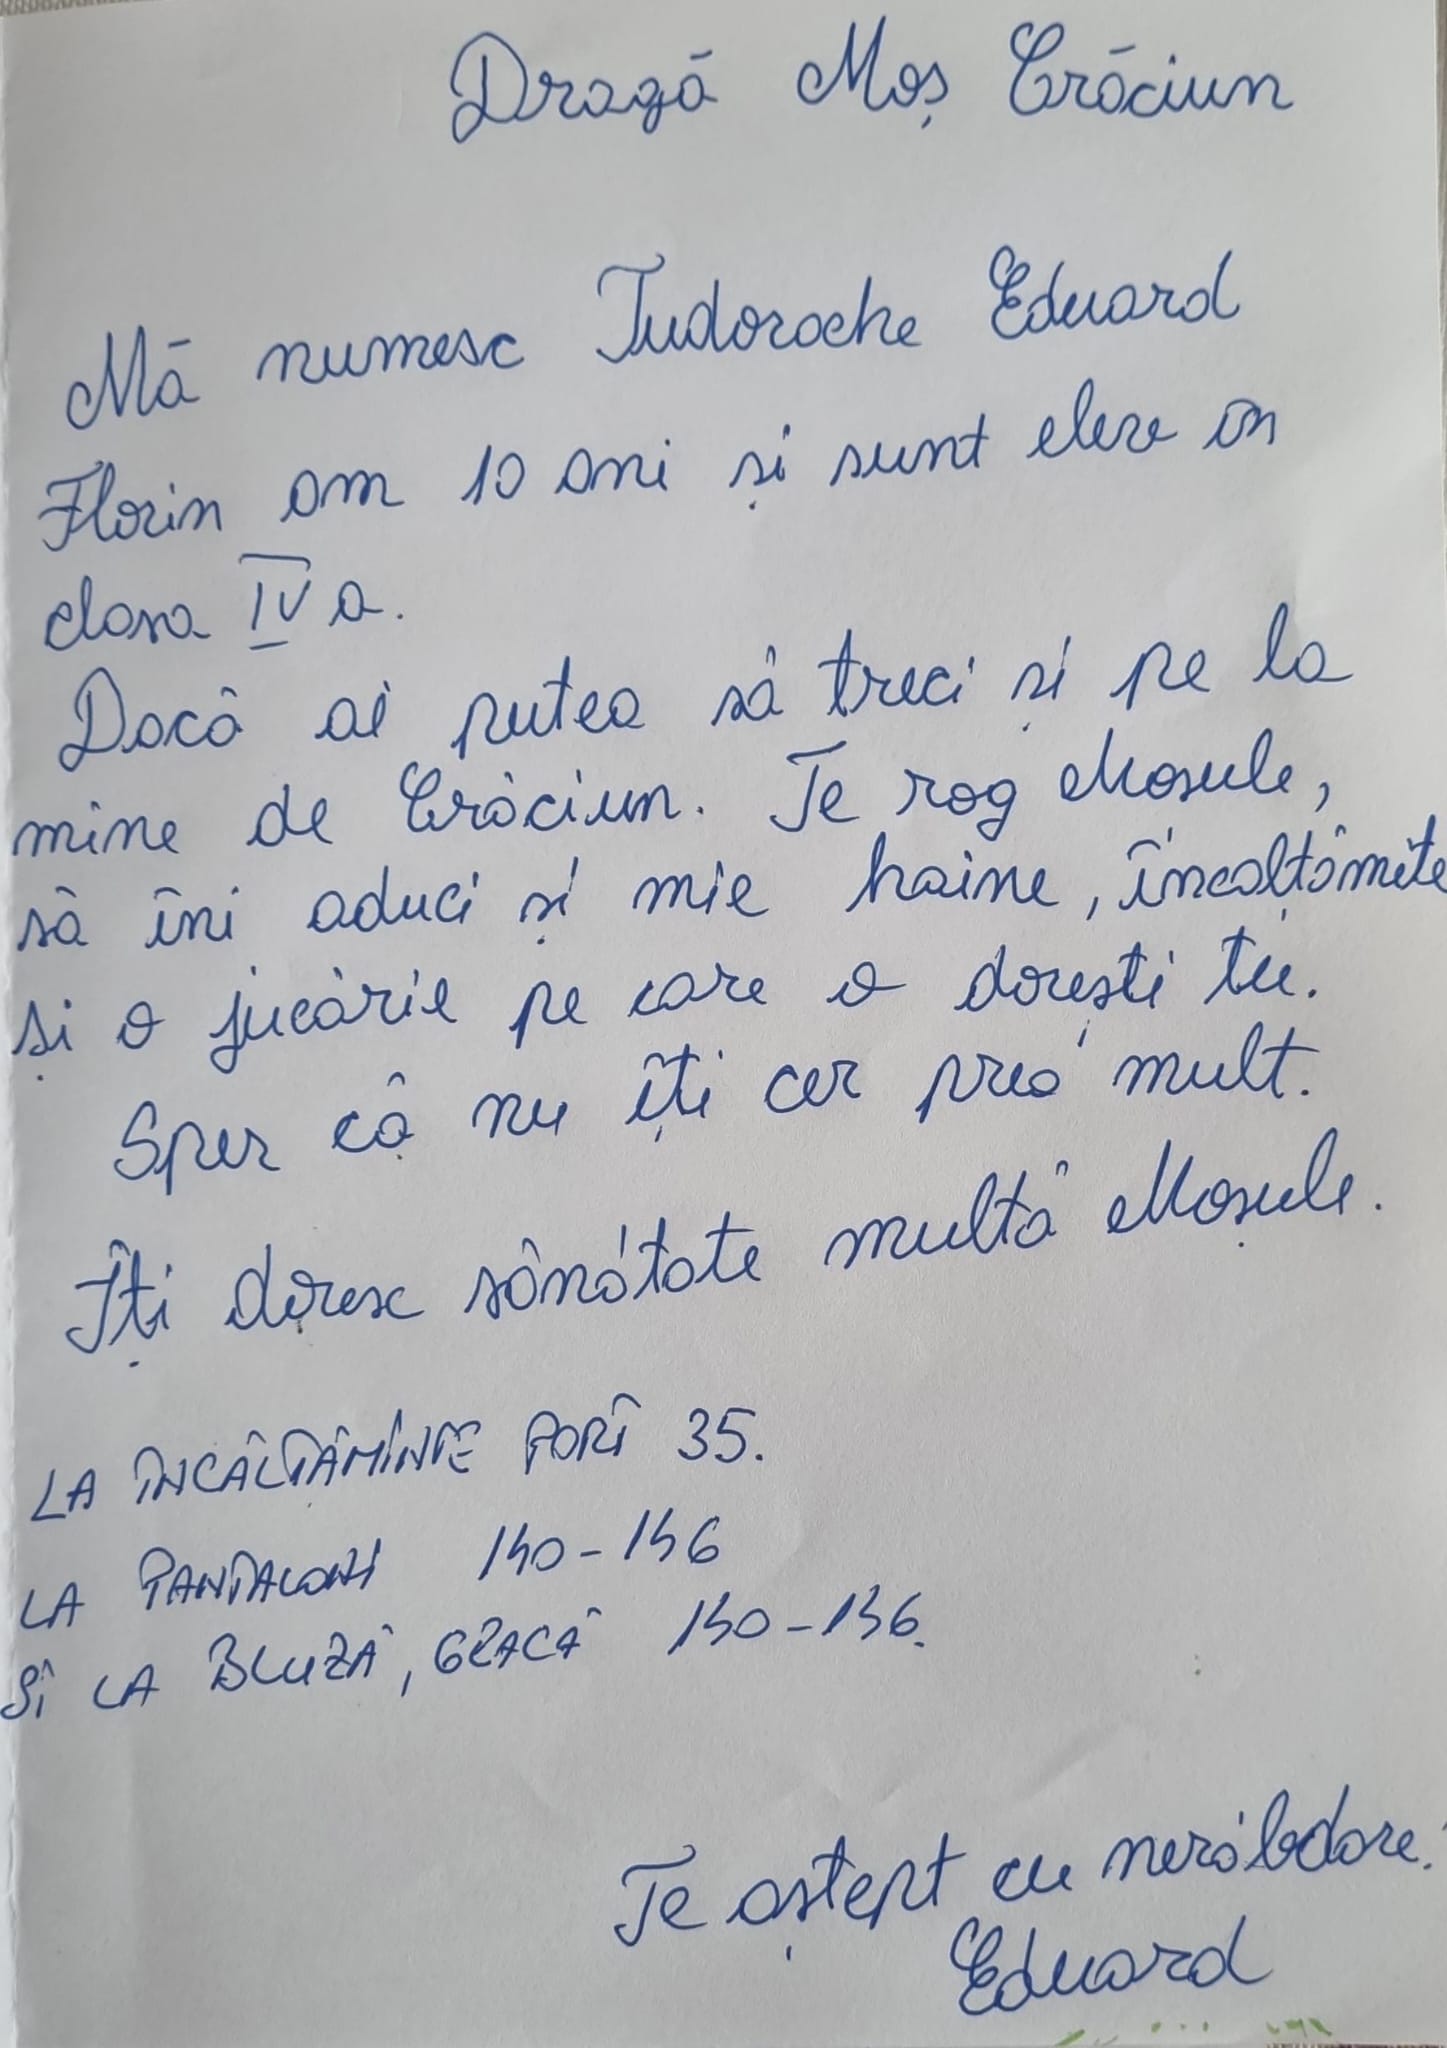 Dragă Moș Crăciun
Mă numesc Tudorache Eduard
Florin am 10 ani și sunt elev în
clasa IV a.
Dacă ai putea să treci și pe la
mine de Crăciun. Te rog Mosule,
să îni aduci și mie haine, încalțămite
și o jucărie pe care o dorești tu.
Sper că nu îți cer prea mult.
Îți doresc sănătate multă Moșule.
LA ÎNCĂLTĂMINTE PORT 35.
LA PANTALONI 140-146
SI LA BLUZĂ, GEACĂ 140-146.
Te aștept cu nerăbdare!
Eduard